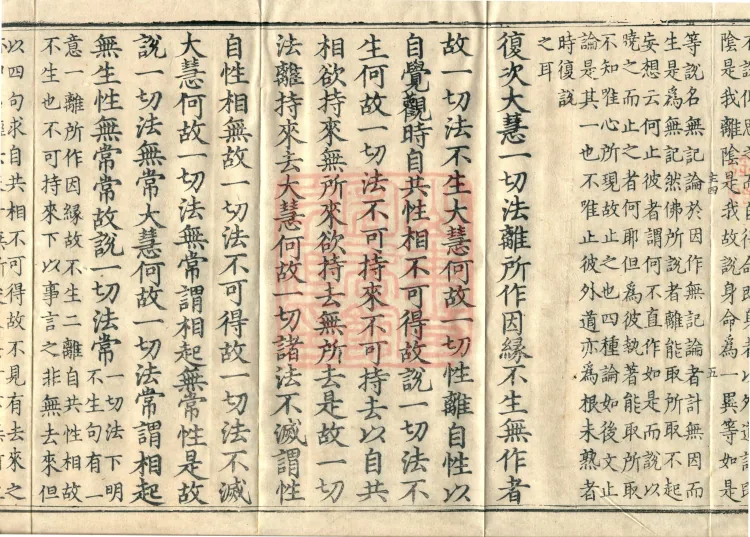 陰是我離陰是我故說身命為一異等如是
等說名無記論於因作無記論者計無因而
生是為無記然佛所說者離能取所取不起
妄想云何止彼者謂何不直作如是而說以
曉之而止之者何耶但為彼執著能取所取
不知唯心所現故止之也四種論如後文止
論是其一也不唯止彼外道亦為根未熟者
時復說
之耳
復次大慧一切法離所作因緣不生無作者
故一切法不生大慧何故一切性離自性以
自覺觀時自共性相不可得故說一切法不
生何故一切法不可持來不可持去以自共
相欲持來無所來欲持去無所去是故一切
法離持來去大慧何故一切諸法不滅謂性
自性相無故一切法不可得故一切法不滅
大慧何故一切法無常謂相起無常性是故
說一切法無常大慧何故一切法常謂相起
無生性無常常故說一切法常
一切法下明
不生句有一
意一離所作因緣故不生二離自共性相故
不生也不可持來下以事言之非無去來但
以四句求自共相不可得故不見有去來之